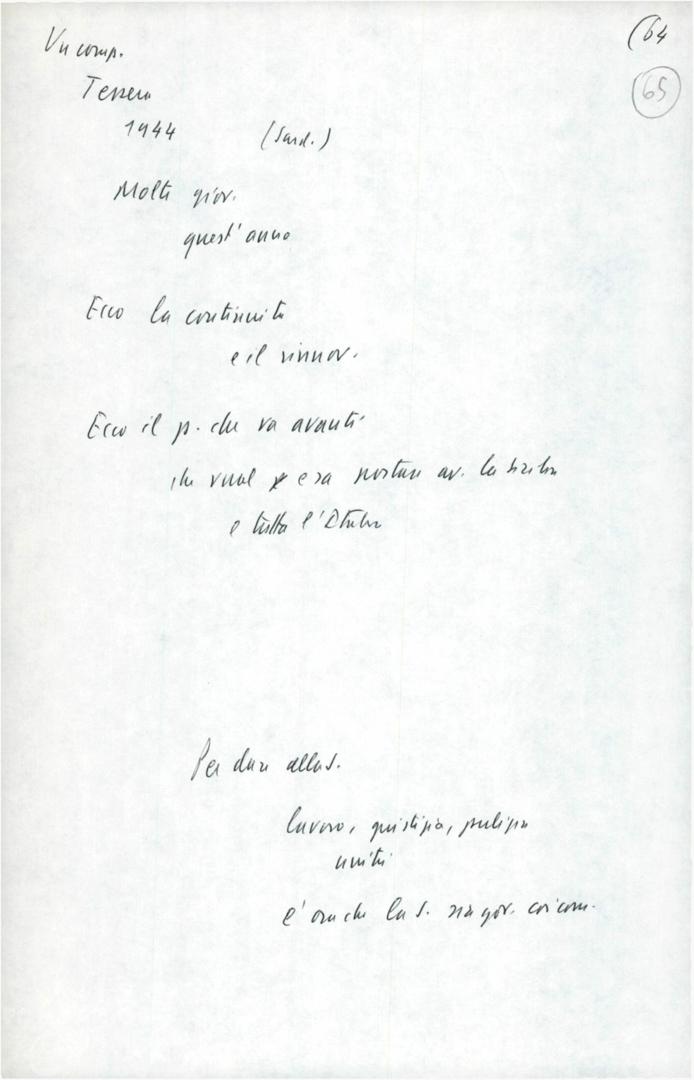 (64
65
Un comp.
Tessera
1944 (Sard.)
Molti giov.
quest'anno
Ecco la continuità
e il rinnov.
Ecco il p. che va avanti
che vuol e sa portare av. la Sicilia
e tutta l'Italia
Per dare alla S.
lavoro, giustizia, pulizia
unità
e' ora che la S. sia gov. coi com.